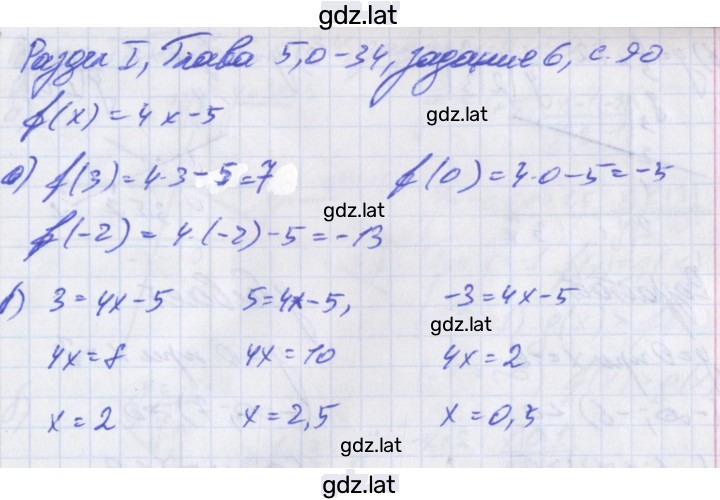 gdz.lat
Раздел I, Глава 5, 0-34, задание 6, с. 90
f(x) = 4x-5
gdz.lat
а) f(3) = 4·3-5=7 f(0) = 4·0-5=-5
gdz.lat
f(-2) = 4·(-2)-5=-13
б) 3=4x-5 5=4x-5, -3=4x-5
gdz.lat
4x=8 4x=10 4x=2
x=2 x=2,5 x=0,5
gdz.lat
gdz.lat